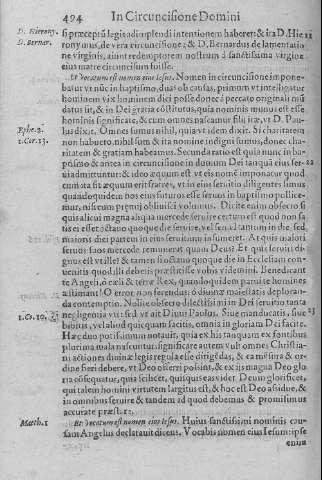 494 In Circuncisione Domini
D. Hierony. si præcepti legis adimplendi intentionem haberet: & ita D. Hie 11
D. Bernar. rony mus, de vera circuncisione; & D. Bernardus de lamentatio
ne virginis, aiunt redemptorem nostrum à sanctissima virgine
eius matre circuncisum fuisse.
Et vocatum est nomen eius Iesus. Nomen in circuncisione impone-
batur vt nũc in baptismo, duabus ob causas, primum vt intelligatur
hominem vix hominem dici posse donec à peccato originali mũ
datus sit, & in Dei gratia cõstitutus, quia nominis munus est esse
hominis significare, & cum omnes nascamur filij iræ, vt D. Pau
Ephe. 2. lus dixit. Omnes sumus nihil, quia vt idem dixit. Si charitatem
1. Cor. 13. non habuero, nihil sum & ita nomine indigni sumus, donec cha-
ritatem & gratiam habeamus. Secunda ratio est quia nunc in ba-
ptismo & antea in circuncisione in domum Dei tanquã eius ser- 22
ui admittuntur: & ideo æquum est vt eis nomẽ imponatur quod
eius seruitio diligentes simus
quandoquidem nos eius futuros esse seruos in baptismo pollice-
mur, nisi eam præmij obliuisci volumus. Dicite enim obsecro si
quis alicui magna aliqua mercede seruire certum est quod non sa
tis ei esset octauo quoque die seruire, vel seruulantum in die, sed
maioris diei partem in eius seruitium insumeret. At quis maiori
seruos suos mercede remunerat quam Deus? Et quis seruiri di-
gnus est vt ille? & tamen si octauo quoque die in Ecclesiam con-
uenitis quod illi debetis præstitisse vobis videmini. Benedicant
te Angeli, ò cæli & terræ Rex, quandoquidem parui te homines
æstimant! O error non ferendus: ò diuinæ maiestatis deploran-
da contemptio. Nolite obsecro dilectissimi in Dei seruitio tanta
1. Co. 10. negligentia vti: sed vt ait Diuus Paulus. Siue manducatis, siue 33
bibitus, vel aliud quicquam facitis, omnia in gloriam Dei facite.
Hæc duo potissimum notauit, quia ex his tanquam ex fontibus
plurima mala nascuntur, significare autem vult omnes Christia-
ni actiones diuinæ legis regula esse dirigẽdas, & ea mẽsura & or-
dine fieri debere, vt Deo offerri possint, & ex iis magna Deo glo
ria cõsequatur, quia scilicet, quisquis eas videt Deum glorificet,
qui talem homini virtutem largitus est, & hoc est Deo assidue, &
in omnibus seruire & tandem ad quod debemus & promisimus
accurate præstare.
Matth. 1 Et vocatum est nomen eius Iesus. Huius sanctissimi nominis cau-
sam Angelus declarauit dicens. Vocabis nomen eius Iesum: ipse
enim